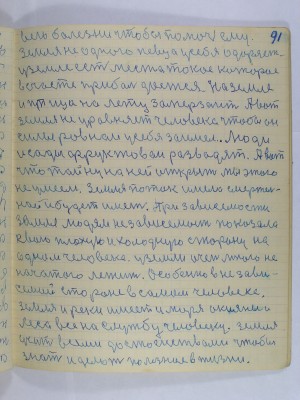 91
чело болезни чтобы помочь ему.
Земля не одного певца у себя одаряет.
У земле есть места такое которое
в счасте прибал дается. На земле
и птица на лету замерзает. А вот
земля не уровняет человека чтобы он
силы ровном у себя занимел. Люди
и сады фруктовои разводят. А вот
что тайну на ней открыть мы этого
не умеем. Земля поток имела смертной
и будет иметь. Три зависемости
земля людям независемость показала
свою плохую и холодную сторону на
одном человека. У земли очен много не
начатого лежит. Особенно в независемой
стороне в самом человеке.
Земля и реки имеет и моря океаны и
леса все на службу человеку. Земля
учит всеми достоинствами чтобы
знать и делать полезное в жизни.